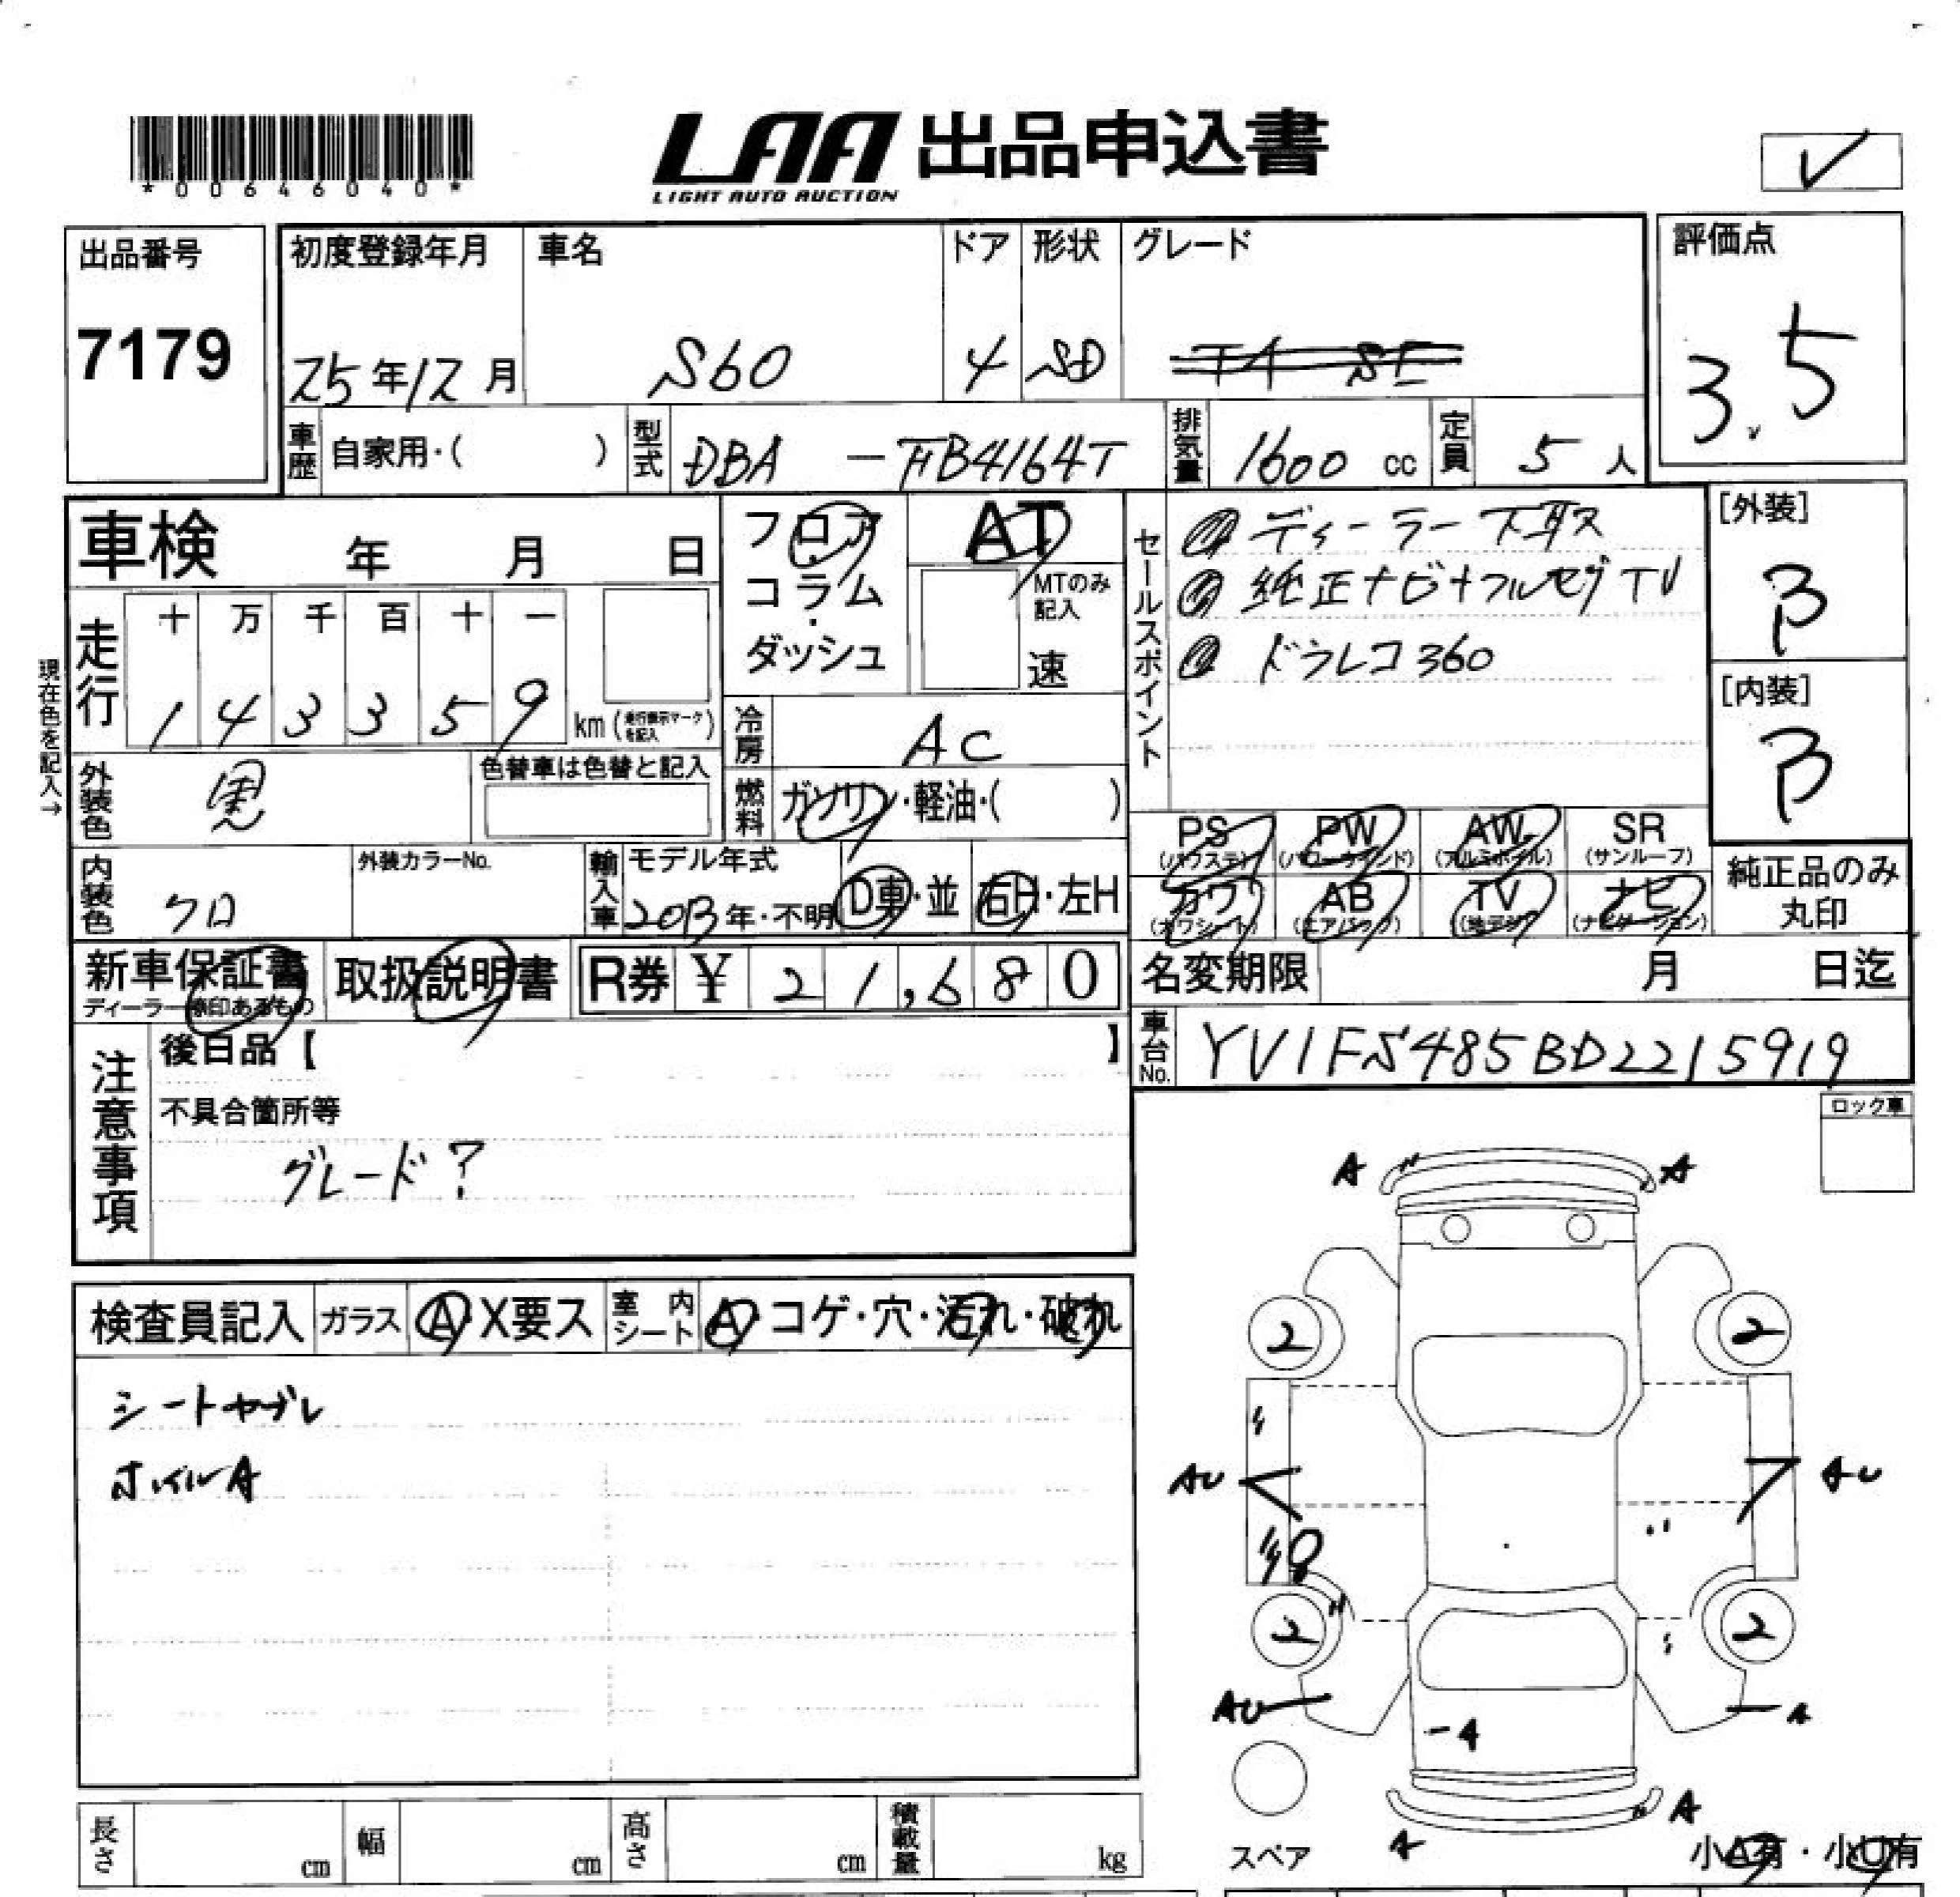 *00646040*
LAA 出品申込書
LIGHT AUTO AUCTION
出品番号
7179
初度登録年月
25年12月
車名
S60
ドア
4
形状
SD
グレード
評価点
3.5
車歴 自家用・( )
型式 DBA - FB4164T
排気量 1600 cc
定員 5 人
車検 年 月 日
フロア・コラム・ダッシュ
AT
MTのみ記入
速
セールスポイント
ディーラー下取ス
純正ナビ+フルセグTV
ドラレコ360
[外装]
B
[内装]
B
現在色を記入→
走行
十 万 千 百 十 一
1 4 3 3 5 9 km (走行表示マークを記入)
冷房 AC
外装色 黒
色替車は色替と記入
燃料 ガソリン・軽油・( )
PS (パワステ)
PW (パワーウインド)
AW (アルミホイル)
SR (サンルーフ)
カワ (カワシート)
AB (エアバック)
TV (地デジ)
ナビ (ナビゲーション)
純正品のみ丸印
内装色 クロ
外装カラーNo.
輸入車
モデル年式
2013年・不明
D車・並
右H・左H
新車保証書
取扱説明書
R券 ¥ 21,680
名変期限 月 日迄
車台No. YV1FS485BD2215919
注意事項
後日品【 】
不具合箇所等
グレード?
ロック車
検査員記入
ガラス A・X要ス
室内シート A・コゲ・穴・汚れ・破れ
シートヤブレ
ホイルA
A A
2 2
AU AU
2 2
AU A
A
A A
スペア
小A有・小U有
長さ cm
幅 cm
高さ cm
積載量 kg